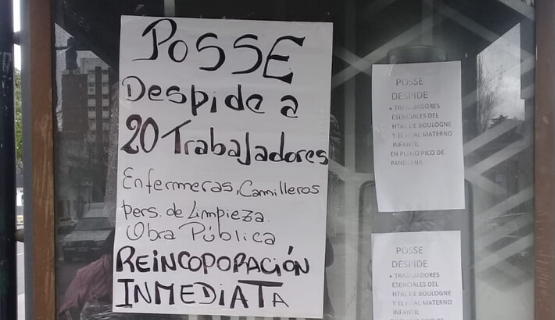 POSSE
Despide a
20 Trabajadores
Enfermeras, Camilleros
pers. de Limpieza.
Obra Pública
REINCOPORACIÓN
INMEDIATA
POSSE
DESPIDE
• TRABAJADORES
ESENCIALES DEL
HTAL DE BOULOGNE
Y EL HTAL MATERNO
INFANTIL
EN PLENO PICO DE
PANDEMIA
POSSE
DESPIDE
• TRABAJADORES
ESENCIALES DEL
HTAL DE BOULOGNE
Y EL HTAL MATERNO
INFANTIL